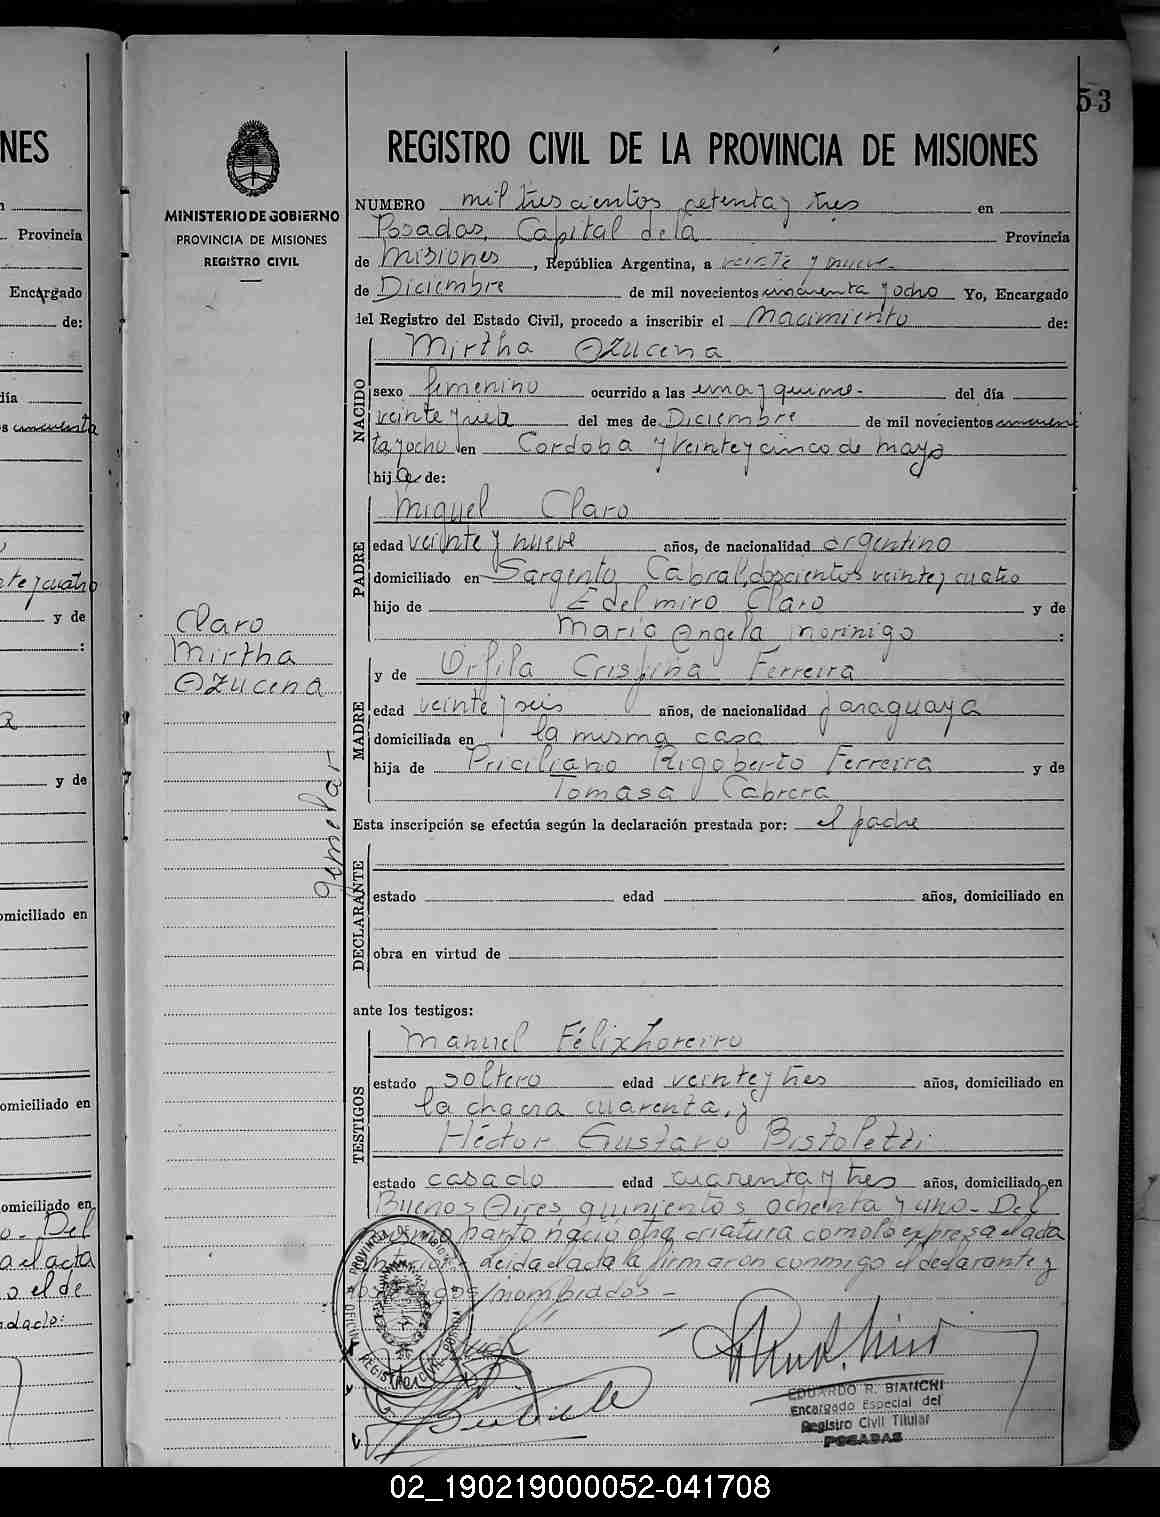 53
REGISTRO CIVIL DE LA PROVINCIA DE MISIONES
MINISTERIO DE GOBIERNO
PROVINCIA DE MISIONES
REGISTRO CIVIL
NUMERO mil trescientos setenta y tres en
Posadas, Capital de la Provincia
de Misiones, República Argentina, a veinte y nueve
de Diciembre de mil novecientos cincuenta y ocho Yo, Encargado
del Registro del Estado Civil, procedo a inscribir el Nacimiento de:
Mirtha Azucena
NACIDO
sexo femenino ocurrido a las una y quince del día
veinte y seis del mes de Diciembre de mil novecientos cincuen
ta y ocho en Cordoba y veinte y cinco de mayo
hija de:
Miguel Claro
PADRE
edad veinte y nueve años, de nacionalidad argentino
domiciliado en Sargento Cabral, doscientos veinte y cuatro
hijo de Edelmiro Claro y de
Maria Angela Morinigo :
Claro
Mirtha
Azucena
gemelar
y de Orfila Crispina Ferreira
MADRE
edad veinte y seis años, de nacionalidad paraguaya
domiciliada en la misma casa
hija de Priciliano Rigoberto Ferreira y de
Tomasa Cabrera
Esta inscripción se efectúa según la declaración prestada por: el padre
DECLARANTE
estado edad años, domiciliado en
obra en virtud de
ante los testigos:
Manuel Félix
TESTIGOS
estado soltero edad veinte y tres años, domiciliado en
la chacra cuarenta, y
Héctor Gustavo Bistoletti
estado casado edad cuarenta y tres años, domiciliado en
Buenos Aires quinientos ochenta y uno. Del
parto nació otra criatura como lo expresa el acta
leida el acta la firmaron conmigo el declarante y
nombrados -
EDUARDO R. BIANCHI
Encargado Especial del
Registro Civil Titular
POSADAS
NES
Provincia
Encargado
de:
día
cincuenta
y cuatro
y de
:
y de
omiciliado en
omiciliado en
omiciliado en
Del
a el acta
o el de
02_190219000052-041708